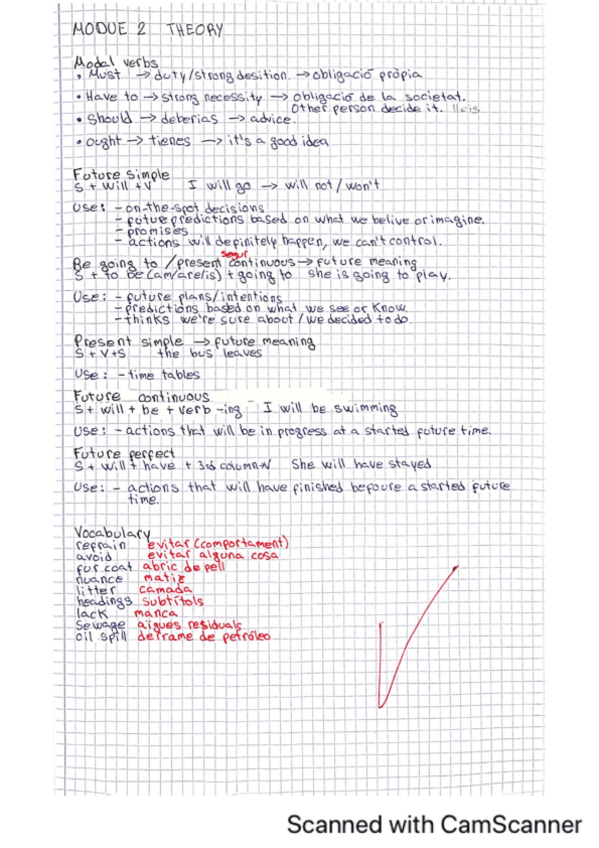 MODUE 2 THEORY
Modal verbs
• Must → duty/strong desition. → obligació pròpia
• Have to → strong necessity → obligació de la societat.
Other person decide it. lleis
• Should → deberias → advice.
• ought → tienes → it's a good idea
Future simple
S + will + V I will go → will not / won't
Use: - on-the-spot decisions
- future predictions based on what we belive or imagine.
- promises
- actions will definitely happen, we can't control.
segur
Be going to / present continuous → future meaning
S + to be (am/are/is) + going to she is going to play.
Use: - future plans/intentions
- predictions based on what we see or know.
- thinks we're sure about / we decided to do.
Present simple → future meaning
S + V + S the bus leaves
Use: - time tables
Future continuous
S + will + be + verb -ing - I will be swimming
Use: - actions that will be in progress at a started future time.
Future perfect
S + will + have + 3rd column She will have stayed
Use: - actions that will have finished befoure a started future
time.
Vocabulary
refrain evitar (comportament)
avoid evitar alguna cosa
fur coat abric de pell
nuance matiz
litter camada
headings subtítols
lack manca
Sewage aigues residuals
oil spill deframe de petróleo
Scanned with CamScanner